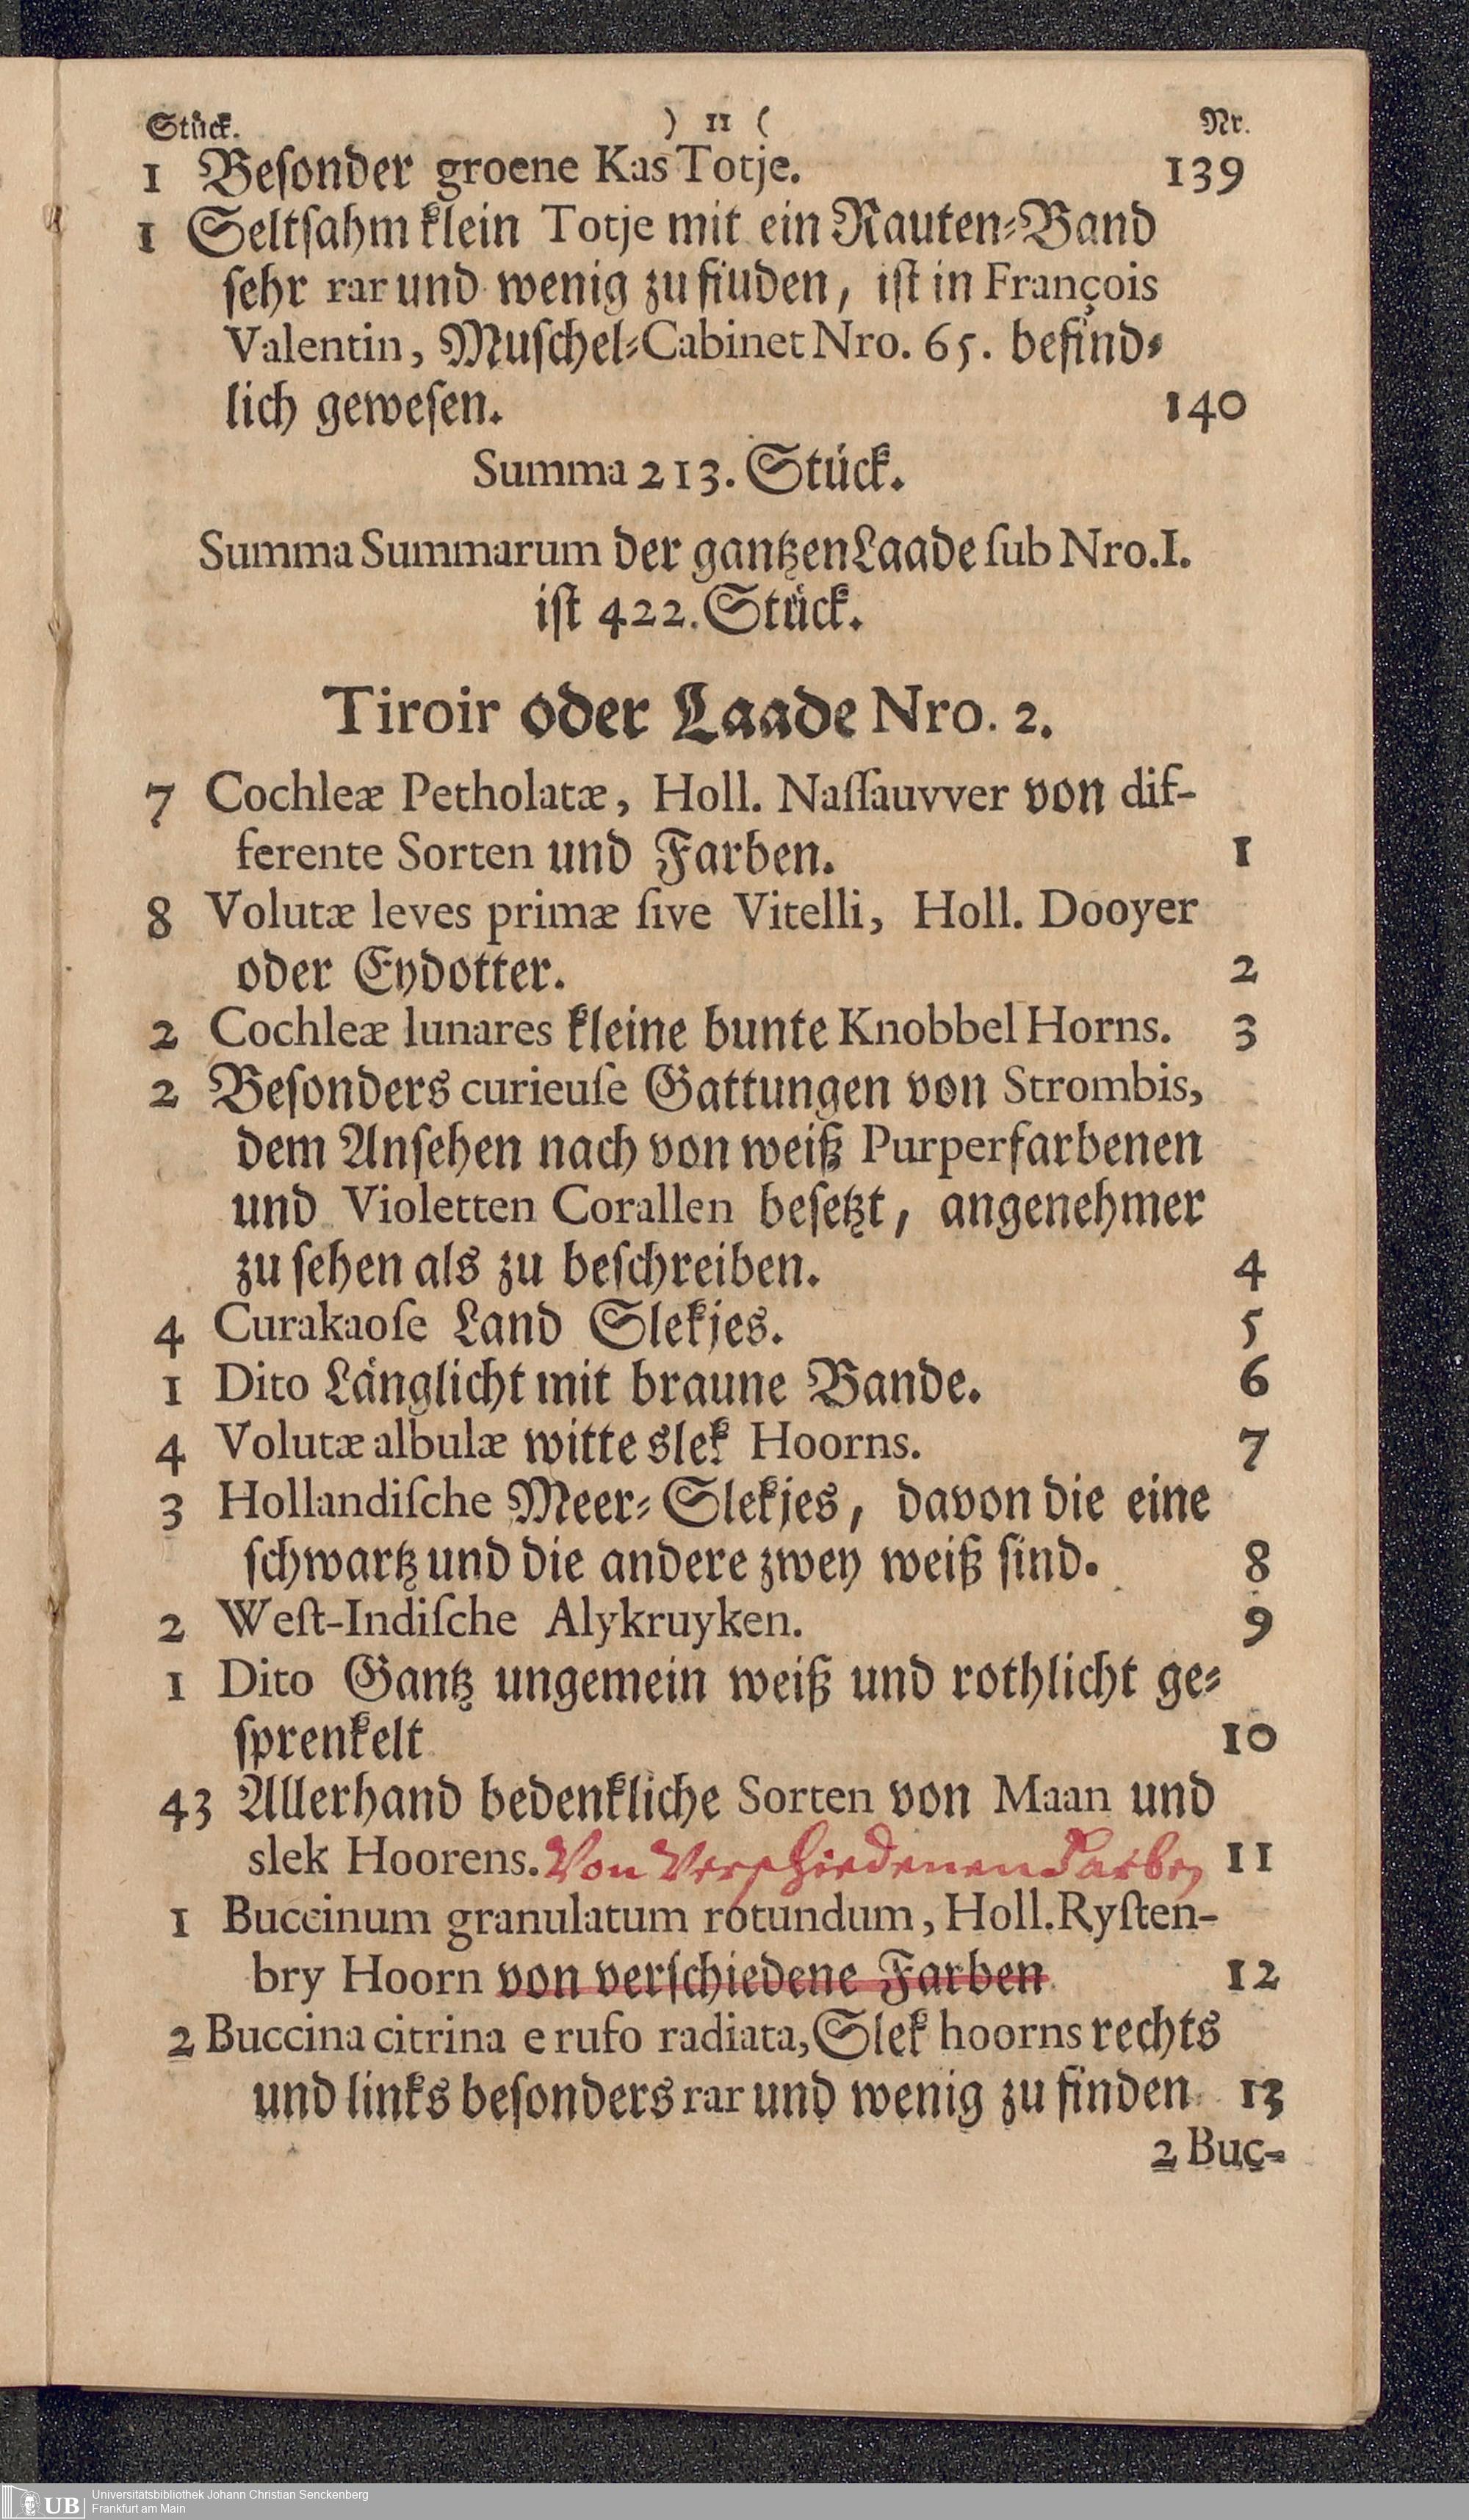 Stück. ) 11 ( Nr.
1 Beſonder groene Kas Totje. 139
1 Seltſahm klein Totje mit ein Rauten⸗Band
ſehr rar und wenig zu fiuden, iſt in François
Valentin, Muſchel⸗Cabinet Nro. 65. befind⸗
lich geweſen. 140
Summa 213. Stück.
Summa Summarum der gantzen Laade ſub Nro. I.
iſt 422. Stück.
Tiroir oder Laade Nro. 2.
7 Cochleæ Petholatæ, Holl. Naſſauvver von dif-
ferente Sorten und Farben. 1
8 Volutæ leves primæ ſive Vitelli, Holl. Dooyer
oder Eydotter. 2
2 Cochleæ lunares kleine bunte Knobbel Horns. 3
2 Beſonders curieuſe Gattungen von Strombis,
dem Anſehen nach von weiß Purperfarbenen
und Violetten Corallen beſetzt, angenehmer
zu ſehen als zu beſchreiben. 4
4 Curakaoſe Land Slekjes. 5
1 Dito Länglicht mit braune Bande. 6
4 Volutæ albulæ witte slek Hoorns. 7
3 Hollandiſche Meer⸗Slekjes, davon die eine
ſchwartz und die andere zwey weiß ſind. 8
2 Weſt-Indiſche Alykruyken. 9
1 Dito Gantz ungemein weiß und rothlicht ge⸗
ſprenkelt 10
43 Allerhand bedenkliche Sorten von Maan und
slek Hoorens. Von Verschiedenen Farben 11
1 Buccinum granulatum rotundum, Holl. Ryſten-
bry Hoorn von verſchiedene Farben 12
2 Buccina citrina e rufo radiata, Slek hoorns rechts
und links beſonders rar und wenig zu finden 13
2 Buc-
UB Universitätsbibliothek Johann Christian Senckenberg
Frankfurt am Main